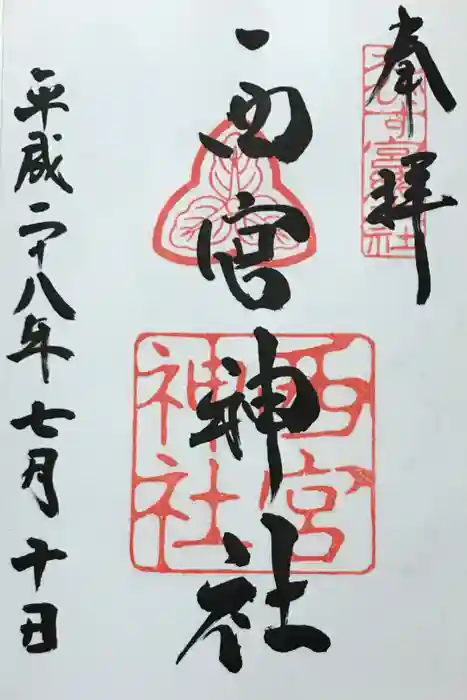 奉拝
西宮神社
平成二十八年七月十日
西宮
神社